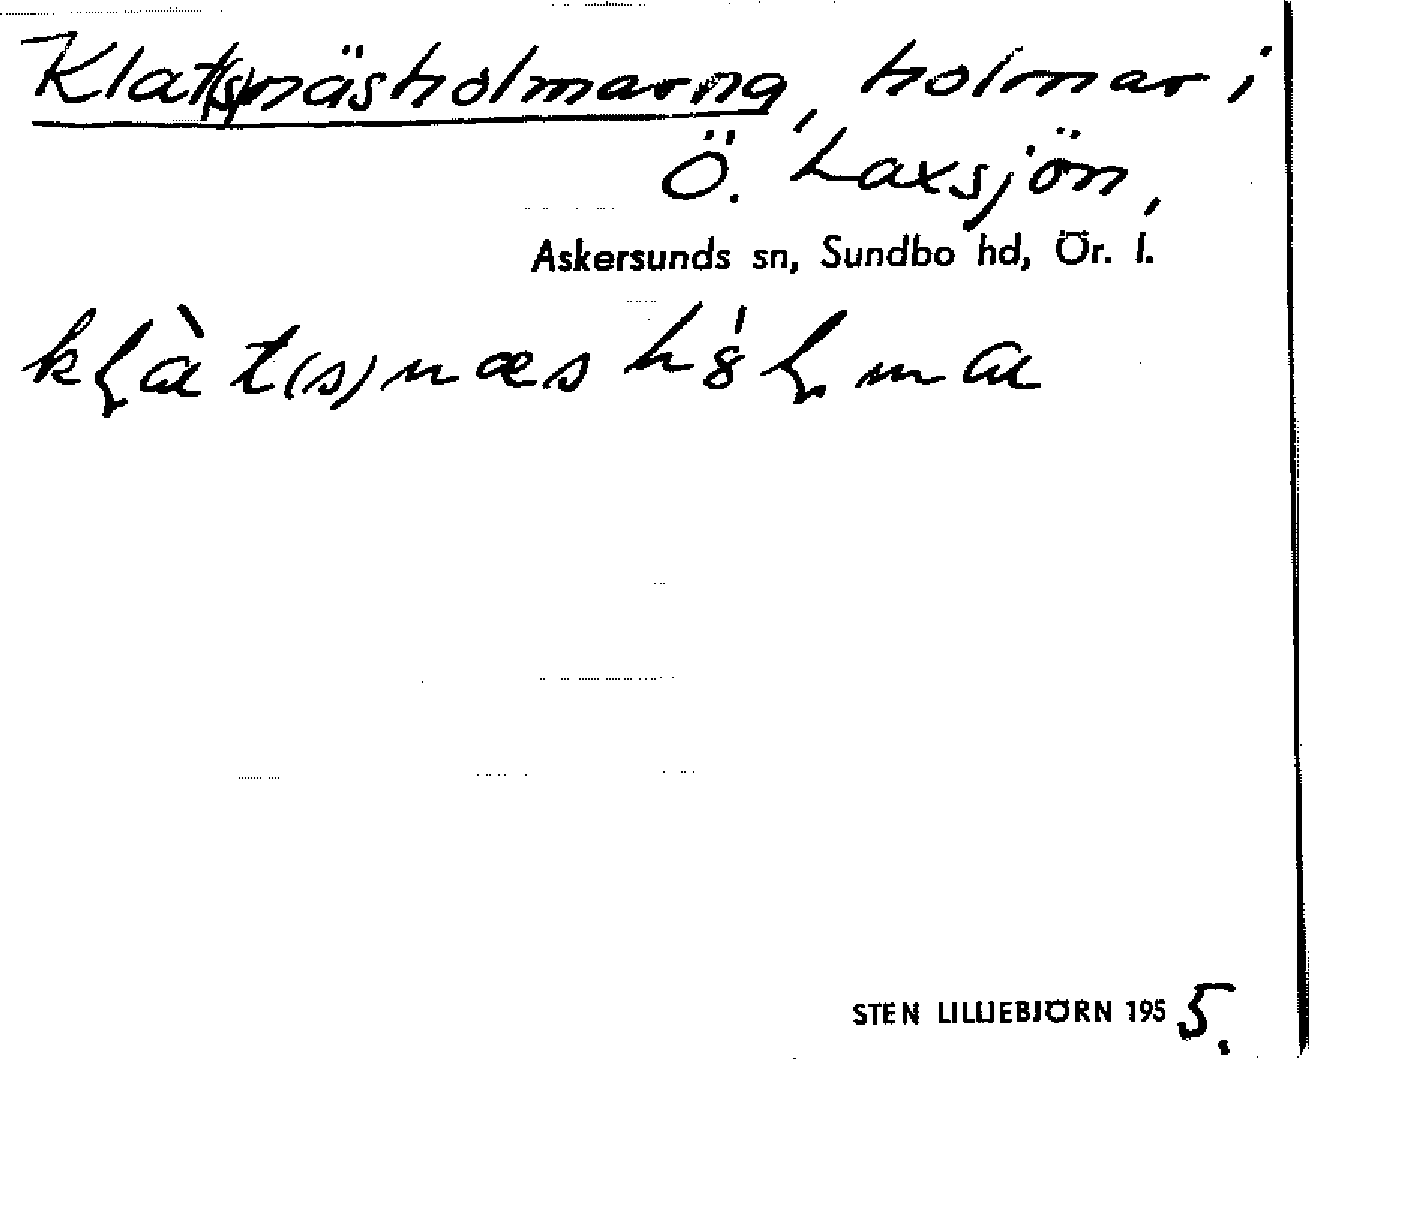 Klat(s)näsholmarna, holmar i
Ö. Laxsjön,
Askersunds sn, Sundbo hd, Ör. l.
kɽàt(s)næshȯ́ɽma
STEN LILLIEBJÖRN 1955.